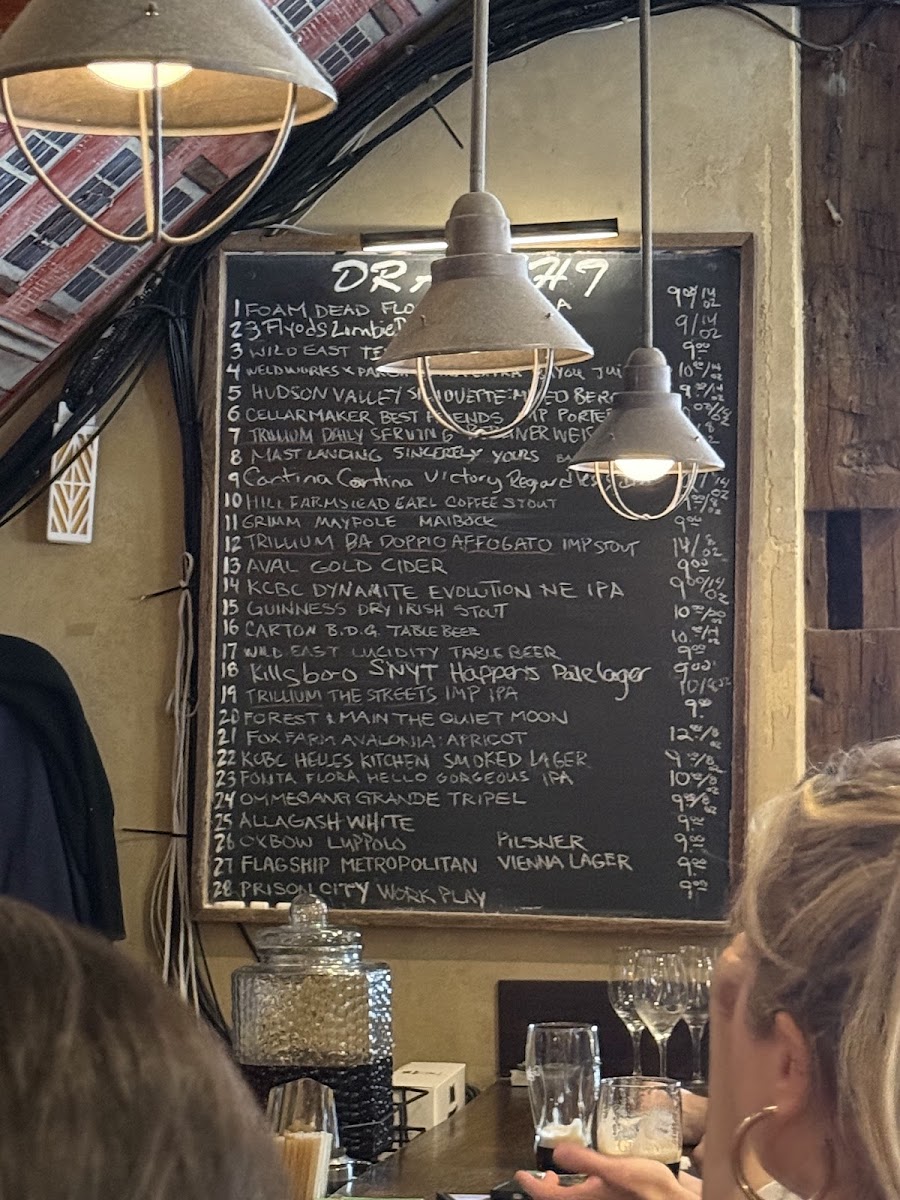 DRA HT
1 FOAM DEAD FLO A 9.00/14 02
2 3 Flyods Zombie 9/14 02
3 WILD EAST TE 9.00
4 WELDWORKS X EXTRA YOU JUI
5 HUDSON VALLEY SILHOUETTE: MIXED BERR
6 CELLARMAKER BEST FRIENDS IMP PORTE
7 TRILLIUM DAILY SERVING WEIS
8 MAST LANDING SINCERELY YOURS BA
9 Cantina Cantina Victory Regardless
10 HILL FARMSTEAD EARL COFFEE STOUT
11 GRIMM MAYPOLE MAIBOCK 9.00
12 TRILLIUM BA DOPPIO AFFOGATO IMP STOUT 14/8 02
13 AVAL GOLD CIDER 9.00
14 KCBC DYNAMITE EVOLUTION NE IPA 9.00/14 02
15 GUINNESS DRY IRISH STOUT
16 CARTON B.D.G. TABLE BEER
17 WILD EAST LUCIDITY TABLE BEER 9.00
18 Killsboro SNYT Happens Pale lager 9.00
19 TRILLIUM THE STREETS IMP IPA
20 FOREST & MAIN THE QUIET MOON 9.00
21 FOX FARM AVALONIA: APRICOT
22 KCBC HELLES KITCHEN SMOKED LAGER
23 FONTA FLORA HELLO GORGEOUS IPA
24 OMMEGANG GRANDE TRIPEL
25 ALLAGASH WHITE 9.00
26 OXBOW LUPPOLO PILSNER 9.00
27 FLAGSHIP METROPOLITAN VIENNA LAGER 9.00
28 PRISON CITY WORK PLAY 9.00